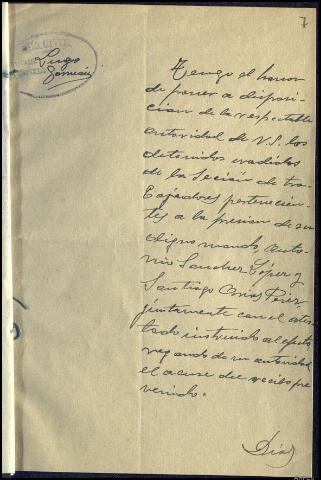 7
Lugo
Tengo el honor
de poner a disposi-
cion de la respetable
autoridad de V.S. los
detenidos evadidos
de la Seccion de tra-
bajadores pertenecien-
tes a la prision de su
digno mando, Anto-
nio Sanchez López y
Santiago Arias Pérez,
juntamente con el ates-
tado instruido al efecto
rogando de su autoridad
el acuse de recibo pre
venido.
Dios